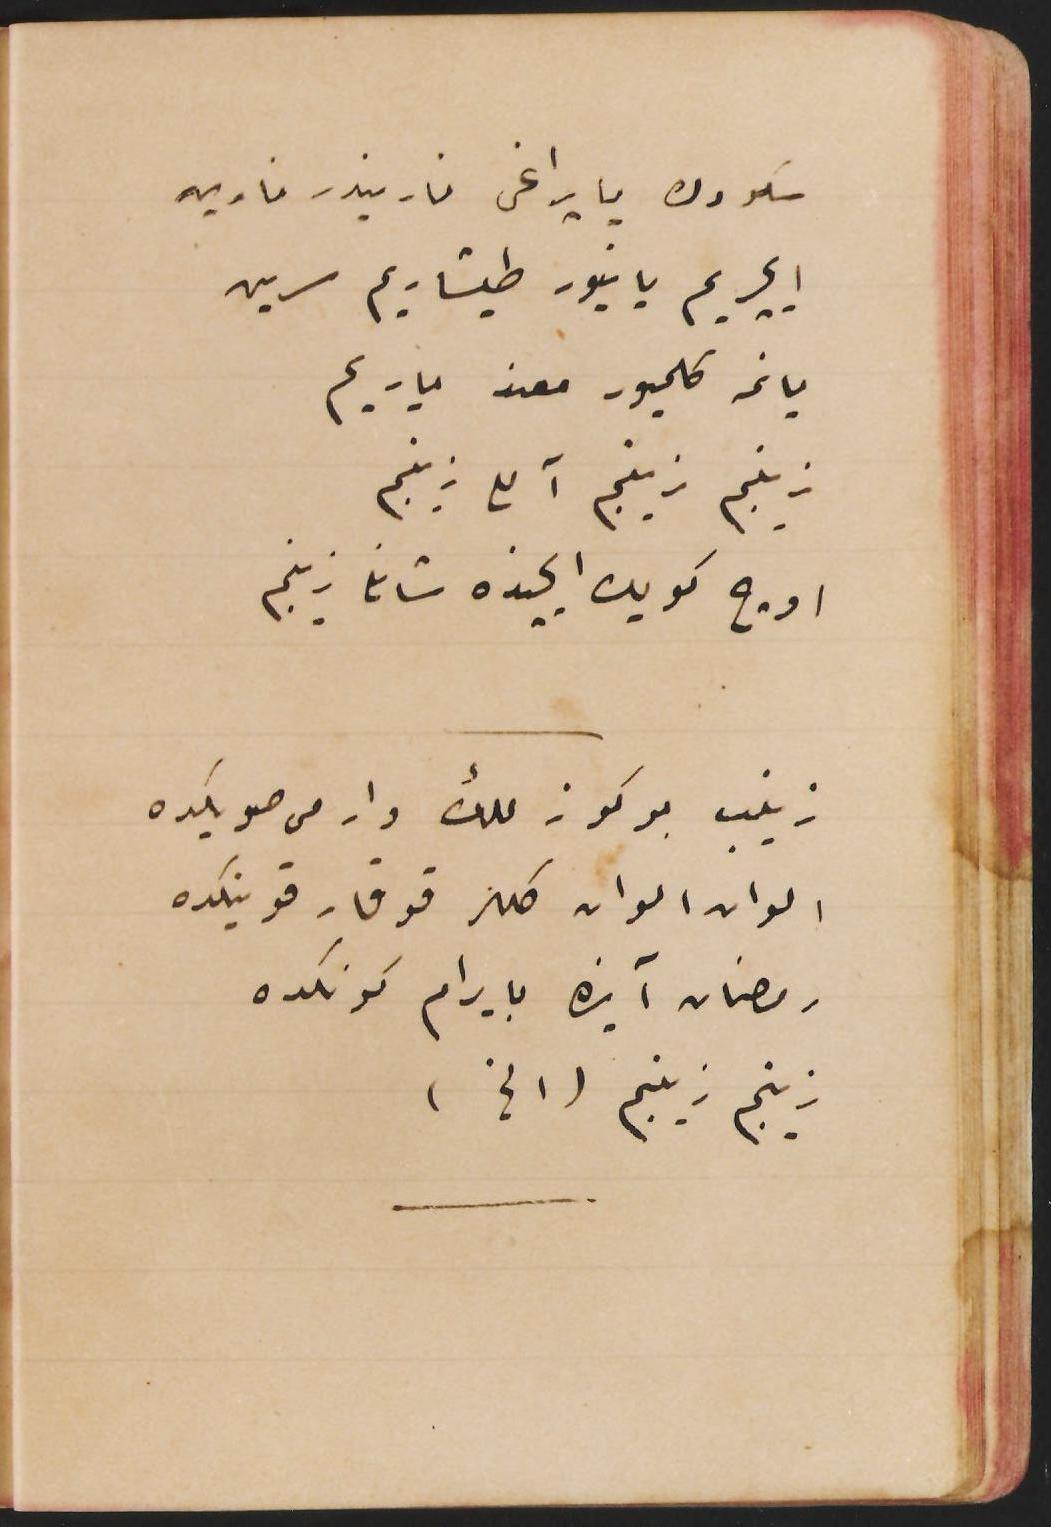 سكودك ياپراغى ناریندر نارین
ایچریم یانیور طیشاریم سرین
یانمه كلمیور یاریم
زینبم زینبم آللى زینبم
اوچ كویك ایچنده شانلى زینبم
زینب بو كوزللك وارمى صویكده
الوان الوان كللر قوقار قوینكده
رمضان آینده بایرام كونكده
زینبم زینبم (الخ)